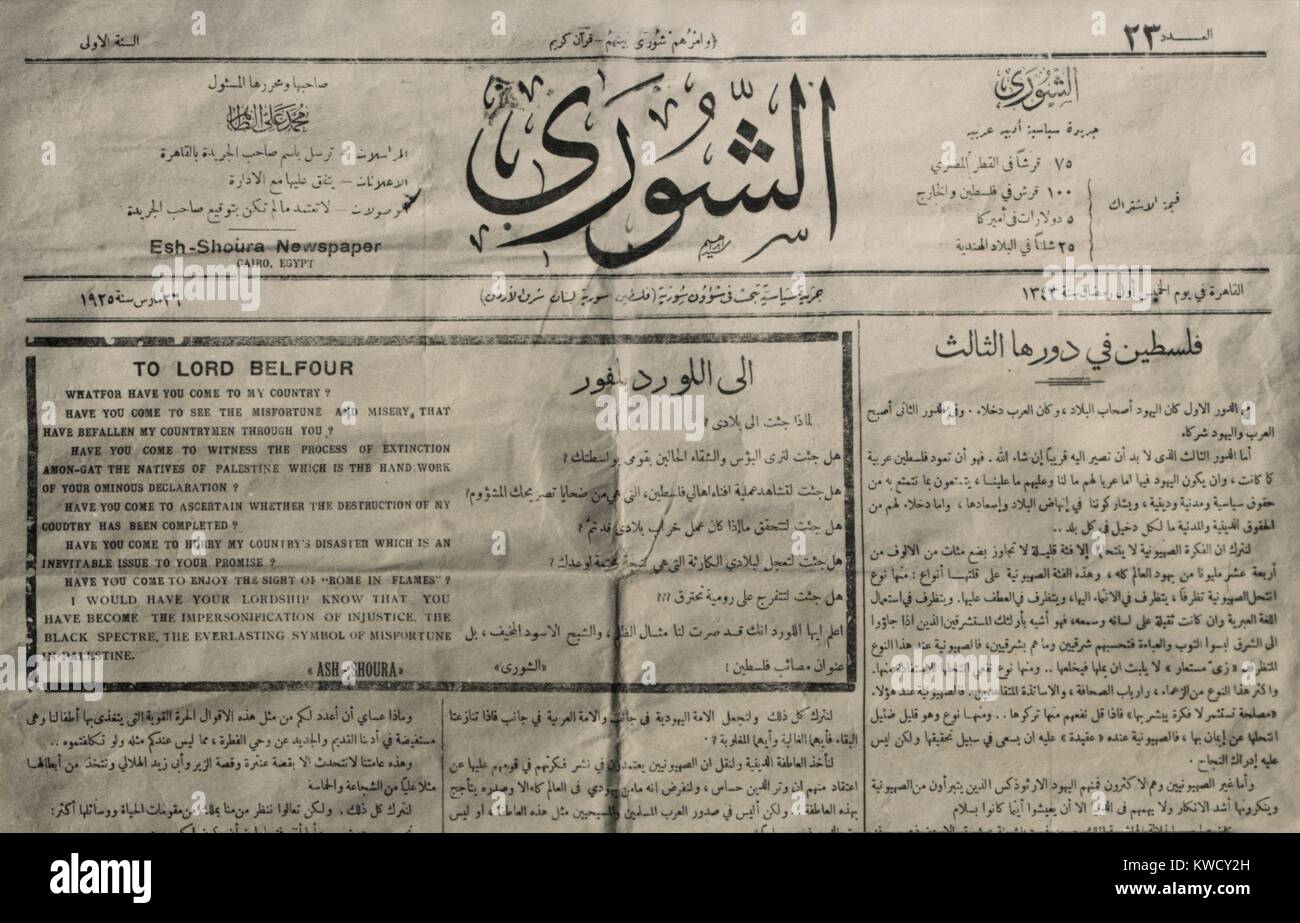 العــدد ٢٣
﴿وامرهم شورى بينهم – قرآن كريم﴾
السنة الاولى
الشورى
جريدة سياسية أدبية عربية
قيمة الاشتراك
٧٥ قرشاً في القطر المصري
١٠٠ قرش في فلسطين والخارج
٥ دولارات في أميركا
٢٥ شلناً في البلاد الهندية
الشورى
صاحبها ومحررها المسئول
محمد علي الطاهر
المراسلات – ترسل باسم صاحب الجريدة بالقاهرة
الاعلانات – يتفق عليها مع الادارة
الوصولات – لا تعتمد ما لم تكن بتوقيع صاحب الجريدة
Esh-Shoura Newspaper
CAIRO, EGYPT
القاهرة في يوم الخميس أول رمضان سنة ١٣٤٣
جريدة سياسية تبحث في شؤون سورية (فلسطين سورية لبنان شرق الأردن)
٢٦ مارس سنة ١٩٢٥
فلسطين في دورها الثالث
في الدور الاول كان اليهود أصحاب البلاد، وكان العرب دخلاء. وفي الدور الثاني أصبح
العرب واليهود شركاء.
أما الدور الثالث الذي لا بد أن تصير اليه قريباً إن شاء الله. فهو أن تعود فلسطين عربية
كما كانت، وان يكون اليهود فيها اما عربا لهم ما لنا وعليهم ما علينا، يتمتعون بما نتمتع به من
حقوق سياسية ومدنية ودينية، ويشاركوننا في إنهاض البلاد وإسعادها، واما دخلاء لهم من
الحقوق الدينية والمدنية ما لكل دخيل في كل بلد..
لنترك ان الفكرة الصهيونية لا ينتحلها إلا فئة قليلة لا تجاوز بضع مئات من الالوف من
أربعة عشر مليونا من يهود العالم كله، وهذه الفئة الصهيونية على قلتها أنواع: منها نوع
انتحل الصهيونية تظرفاً، يتظرف في الانتماء اليها، ويتظرف في العطف عليها. ويتظرف في استعمال
اللغة العبرية وان كانت ثقيلة على لسانه وسمعه، فهو أشبه بأولئك المستشرقين الذين اذا جاؤوا
الى الشرق لبسوا الثوب والعباءة فتحسبهم شرقيين وما هم بشرقيين، فالصهيونية عند هذا النوع
المتظرف «زي مستعار» لا يلبث ان يملها فيخلعها.. ومنها نوع نفعي انتحلها للاستفادة منها.
واكثر هذا النوع من الزعماء، وارباب الصحافة، والاساتذة المتقاعدين. فالصهيونية عند هؤلاء.
«مصلحة تستثمر لا فكرة يبشر بها» فاذا قل نفعهم منها تركوها.. ومنها نوع وهو قليل ضئيل
انتحلها عن إيمان بها، فالصهيونية عنده «عقيدة» عليه ان يسعى في سبيل تحقيقها ولكن ليس
عليه إدراك النجاح.
وأما غير الصهيونيين وهم الاكثرون فمنهم اليهود الارثوذكس الذين يتبرأون من الصهيونية
وينكرونها أشد الانكار ولا يهمهم في الدنيا الا أن يعيشوا أينما كانوا بسلام
TO LORD BELFOUR
WHATFOR HAVE YOU COME TO MY COUNTRY ?
HAVE YOU COME TO SEE THE MISFORTUNE AND MISERY, THAT
HAVE BEFALLEN MY COUNTRYMEN THROUGH YOU ?
HAVE YOU COME TO WITNESS THE PROCESS OF EXTINCTION
AMON-GAT THE NATIVES OF PALESTINE WHICH IS THE HAND WORK
OF YOUR OMINOUS DECLARATION ?
HAVE YOU COME TO ASCERTAIN WHETHER THE DESTRUCTION OF MY
COUDTRY HAS BEEN COMPLETED ?
HAVE YOU COME TO HURRY MY COUNTRY'S DISASTER WHICH IS AN
INEVITABLE ISSUE TO YOUR PROMISE ?
HAVE YOU COME TO ENJOY THE SIGHT OF "ROME IN FLAMES" ?
I WOULD HAVE YOUR LORDSHIP KNOW THAT YOU
HAVE BECOME THE IMPERSONIFICATION OF INJUSTICE, THE
BLACK SPECTRE, THE EVERLASTING SYMBOL OF MISFORTUNE
IN PALESTINE.
«ASH-SHOURA»
الى اللورد بلفور
لماذا جئت الى بلادي ؟
هل جئت لترى البؤس والشقاء الحالين بقومي بواسطتك ؟
هل جئت لتشاهد عملية افناء اهالي فلسطين، التي هي من ضحايا تصريحك المشؤوم؟
هل جئت لتتحقق ما إذا كان عمل خراب بلادي قد تم ؟
هل جئت لتعجل لبلادي الكارثة التي هي نتيجة محتمة لوعدك ؟
هل جئت لتتفرج على رومية تحترق ؟؟؟
اعلم ايها اللورد انك قد صرت لنا مثال الظلم، والشبح الاسود المخيف، بل
عنوان مصائب فلسطين !
«الشورى»
لنترك كل ذلك ولنجعل الامة اليهودية في جانب والامة العربية في جانب فاذا تنازعتا
البقاء فأيهما الغالبة وأيهما المغلوبة ؟
لنأخذ العاطفة الدينية ولنقل ان الصهيونيين يعتمدون في نشر فكرتهم في قومهم عليها عن
اعتقاد منهم ان وتر الدين حساس، ولنفرض إنه ما من يهودي في العالم كله الا وصدره يتأجج
بهذه العاطفة، ولكن أليس في صدور العرب المسلمين والمسيحيين مثل هذه العاطفة، او ليس
وماذا عساي أن أعدد لكم من مثل هذه الاقوال الحرة القوية التي يتغذى بها أطفالنا وهي
مستفيضة في أدبنا القديم والجديد عن وحي الفطرة، مما ليس عندكم مثله ولو تكلفتموه..
وهذه عامتنا لا تتحدث الا بقصة عنترة وقصة الزير وأبي زيد الهلالي وتتخذ من أبطالها
مثلا عليا من الشجاعة والحماسة
لنترك كل ذلك. ولكن تعالوا ننظر من منا يملك من مقومات الحياة ووسائلها أكثر:
alamy
Image ID: KWCY2H
www.alamy.com